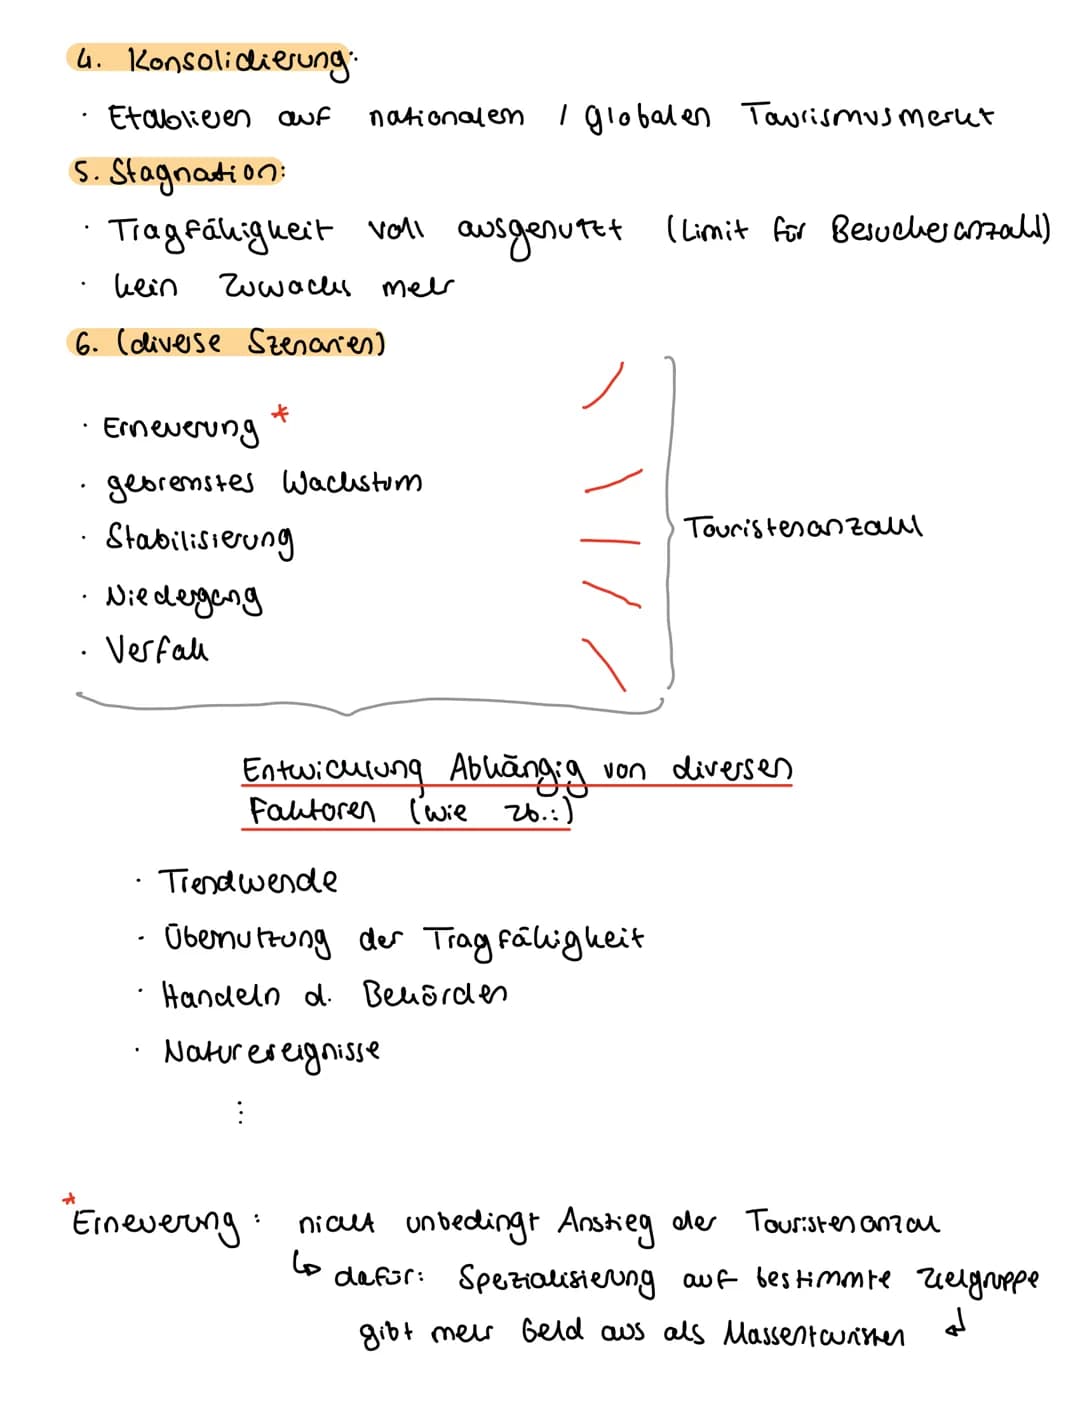 4. Konsolidierung:
· Etablieren auf nationalem / globalen Tourismusmarkt
5. Stagnation:
· Tragfähigkeit voll ausgenutzt (Limit für Besucheranzahl)
· kein Zuwachs mehr
6. (diverse Szenarien)
· Erneuerung *
· gebremstes Wachstum
· Stabilisierung
· Niedergang
· Verfall
Touristenanzahl
Entwicklung Abhängig von diversen
Faktoren (wie zb.:)
· Trendwende
· Übernutzung der Tragfähigkeit
· Handeln d. Behörden
· Naturereignisse
⋮
*Erneuerung: nicht unbedingt Anstieg der Touristenanzahl
↳ dafür: Spezialisierung auf bestimmte Zielgruppe
gibt mehr Geld aus als Massentouristen ↲